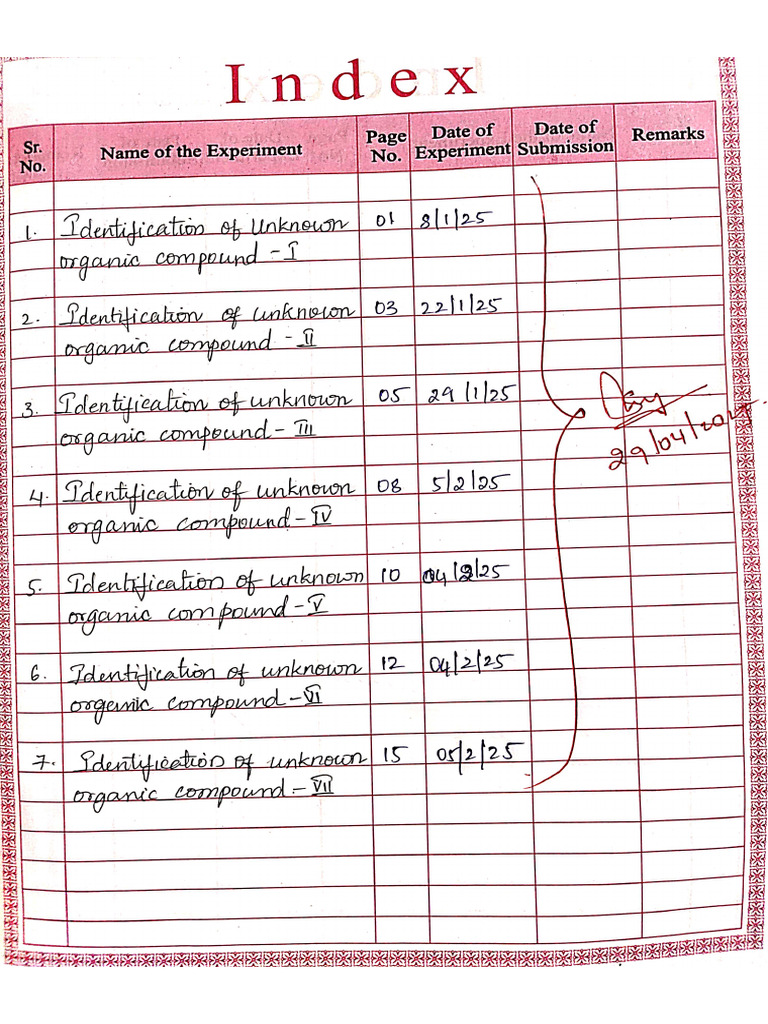 Index
Sr. No. Name of the Experiment Page No. Date of Experiment Date of Submission Remarks
1. Identification of Unknown 01 8/1/25
organic compound - I
2. Identification of unknown 03 22/1/25
organic compound - II
3. Identification of unknown 05 29/1/25
organic compound - III
29/04/2025
4. Identification of unknown 08 5/2/25
organic compound - IV
5. Identification of unknown 10 04/2/25
organic compound - V
6. Identification of unknown 12 04/2/25
organic compound - VI
7. Identification of unknown 15 05/2/25
organic compound - VII